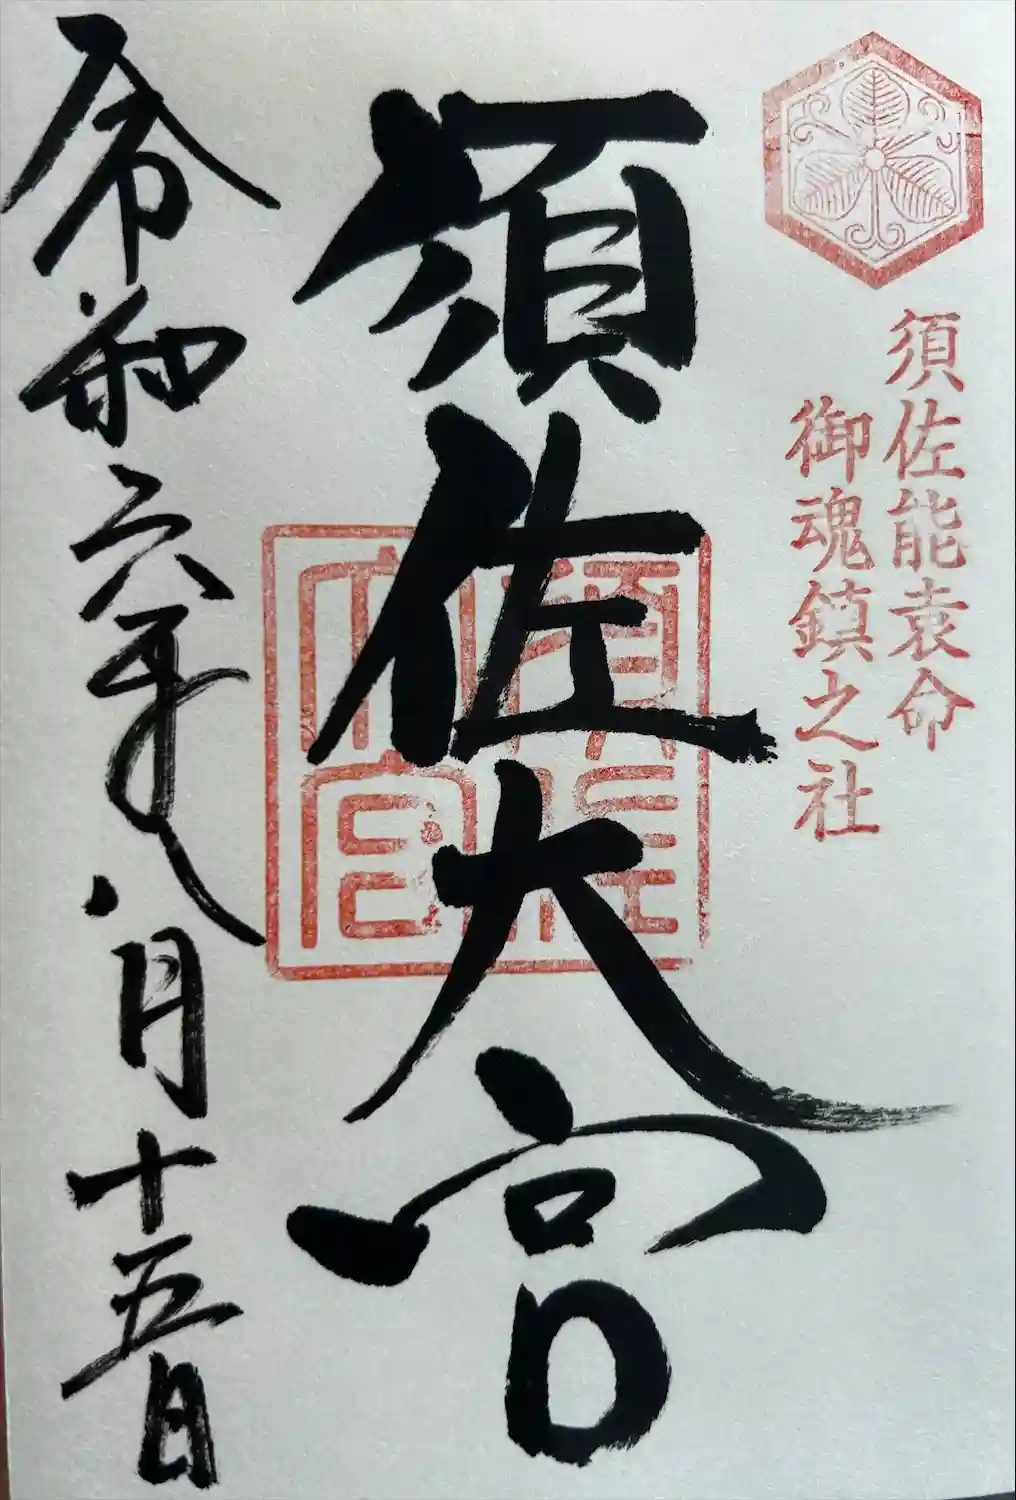 須佐能袁命
御魂鎮之社
須佐大宮
令和六年八月十五日
須佐
大宮